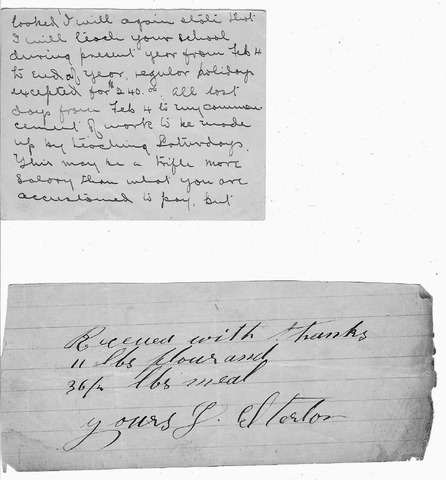 looked I will again state that
I will teach your school
during present year from Feb 4
to end of year, regular holidays
excepted for $240.00. All lost
days from Feb 4 to my commen
cement of work to be made
up by teaching Saturdays.
This may be a trifle more
salary than what you are
accustomed to pay, but
Received with thanks
11 lbs flour and
36½ lbs meal
yours J.